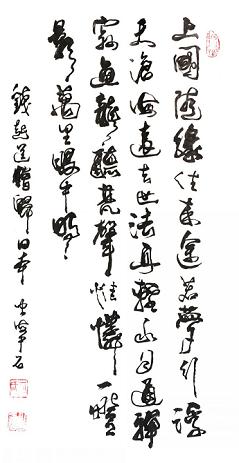 上國随緣住來途若夢行浮
天滄海遠去世法舟輕水月通禪
寂魚龍聽梵聲惟憐一燈
影萬里眼中明
錢起送僧歸日本